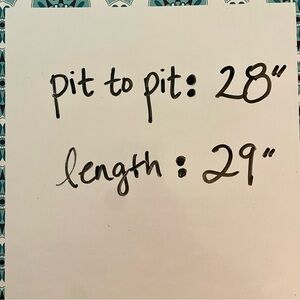 pit to pit: 28"
length: 29"